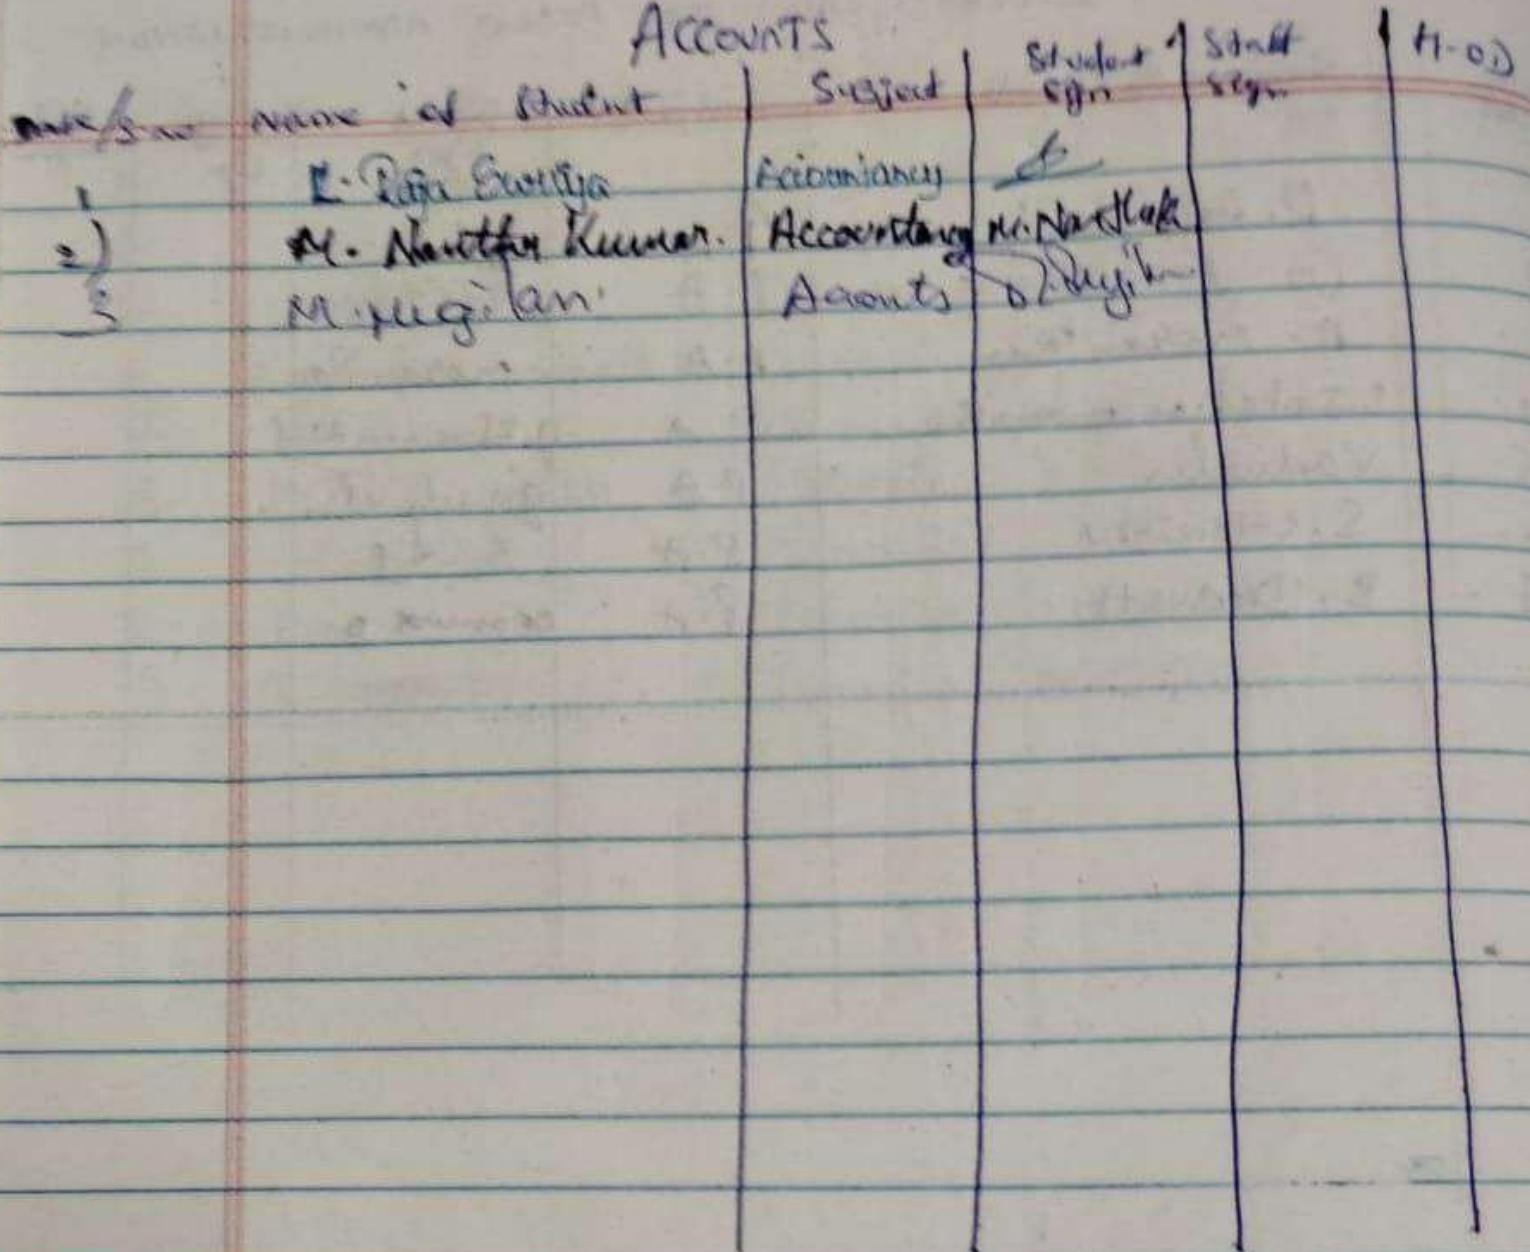 ACCOUNTS
Name of Student Subject Student sign Staff sign H-OD
1 Raja Suriya Accountancy
2) M. Nantha Kumar. Accountancy M. Nantha
3 M. Mugilan. Aaonts